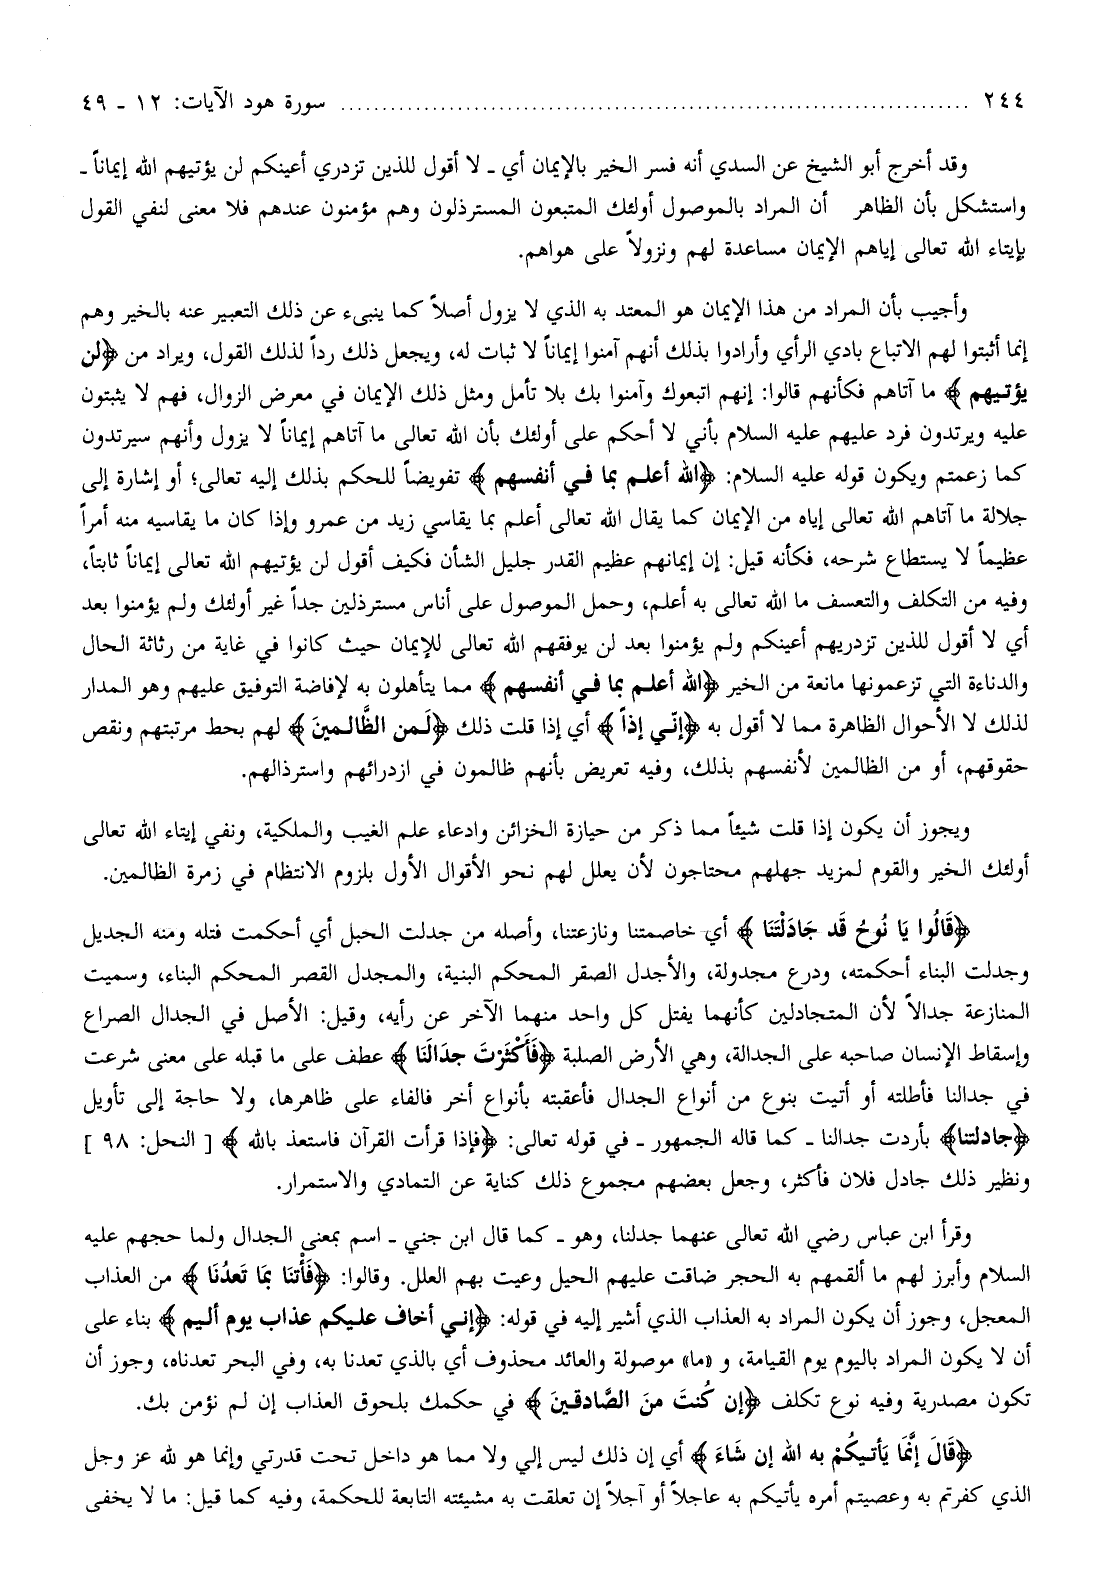 ٢٤٤ ........................................................................ سورة هود الآيات: ١٢ ـ ٤٩
وقد أخرج أبو الشيخ عن السدي أنه فسر الخير بالإيمان أي ـ لا أقول للذين تزدري أعينكم لن يؤتيهم الله إيماناً ـ
واستشكل بأن الظاهر أن المراد بالموصول أولئك المتبعون المسترذلون وهم مؤمنون عندهم فلا معنى لنفي القول
بإيتاء الله تعالى إياهم الإيمان مساعدة لهم ونزولاً على هواهم.
وأجيب بأن المراد من هذا الإيمان هو المعتد به الذي لا يزول أصلاً كما ينبىء عن ذلك التعبير عنه بالخير وهم
إنما أثبتوا لهم الاتباع بادي الرأي وأرادوا بذلك أنهم آمنوا إيماناً لا ثبات له، ويجعل ذلك رداً لذلك القول، ويراد من ﴿لن
يؤتيهم﴾ ما آتاهم فكأنهم قالوا: إنهم اتبعوك وآمنوا بك بلا تأمل ومثل ذلك الإيمان في معرض الزوال، فهم لا يثبتون
عليه ويرتدون فرد عليهم عليه السلام بأني لا أحكم على أولئك بأن الله تعالى ما آتاهم إيماناً لا يزول وأنهم سيرتدون
كما زعمتم ويكون قوله عليه السلام: ﴿الله أعلم بما في أنفسهم﴾ تفويضاً للحكم بذلك إليه تعالى؛ أو إشارة إلى
جلالة ما آتاهم الله تعالى إياه من الإيمان كما يقال الله تعالى أعلم بما يقاسي زيد من عمرو وإذا كان ما يقاسيه منه أمراً
عظيماً لا يستطاع شرحه، فكأنه قيل: إن إيمانهم عظيم القدر جليل الشأن فكيف أقول لن يؤتيهم الله تعالى إيماناً ثابتاً،
وفيه من التكلف والتعسف ما الله تعالى به أعلم، وحمل الموصول على أناس مسترذلين جداً غير أولئك ولم يؤمنوا بعد
أي لا أقول للذين تزدريهم أعينكم ولم يؤمنوا بعد لن يوفقهم الله تعالى للإيمان حيث كانوا في غاية من رثاثة الحال
والدناءة التي تزعمونها مانعة من الخير ﴿الله أعلم بما في أنفسهم﴾ مما يتأهلون به لإفاضة التوفيق عليهم وهو المدار
لذلك لا الأحوال الظاهرة مما لا أقول به ﴿إنّي إذاً﴾ أي إذا قلت ذلك ﴿لَمن الظَّالمينَ﴾ لهم بحط مرتبتهم ونقص
حقوقهم، أو من الظالمين لأنفسهم بذلك، وفيه تعريض بأنهم ظالمون في ازدرائهم واسترذالهم.
ويجوز أن يكون إذا قلت شيئاً مما ذكر من حيازة الخزائن وادعاء علم الغيب والملكية، ونفي إيتاء الله تعالى
أولئك الخير والقوم لمزيد جهلهم محتاجون لأن يعلل لهم نحو الأقوال الأول بلزوم الانتظام في زمرة الظالمين.
﴿قَالُوا يَا نُوحُ قَد جَادَلْتَنَا﴾ أي خاصمتنا ونازعتنا، وأصله من جدلت الحبل أي أحكمت فتله ومنه الجديل
وجدلت البناء أحكمته، ودرع مجدولة، والأجدل الصقر المحكم البنية، والمجدل القصر المحكم البناء، وسميت
المنازعة جدالاً لأن المتجادلين كأنهما يفتل كل واحد منهما الآخر عن رأيه، وقيل: الأصل في الجدال الصراع
وإسقاط الإنسان صاحبه على الجدالة، وهي الأرض الصلبة ﴿فَأَكْثَرْتَ جدَالَنَا﴾ عطف على ما قبله على معنى شرعت
في جدالنا فأطلته أو أتيت بنوع من أنواع الجدال فأعقبته بأنواع أخر فالفاء على ظاهرها، ولا حاجة إلى تأويل
﴿جادلتنا﴾ بأردت جدالنا ـ كما قاله الجمهور ـ في قوله تعالى: ﴿فإذا قرأت القرآن فاستعذ بالله﴾ [ النحل: ٩٨ ]
ونظير ذلك جادل فلان فأكثر، وجعل بعضهم مجموع ذلك كناية عن التمادي والاستمرار.
وقرأ ابن عباس رضي الله تعالى عنهما جدلنا، وهو ـ كما قال ابن جني ـ اسم بمعنى الجدال ولما حجهم عليه
السلام وأبرز لهم ما ألقمهم به الحجر ضاقت عليهم الحيل وعيت بهم العلل. وقالوا: ﴿فَأْتنَا بمَا تَعدُنَا﴾ من العذاب
المعجل، وجوز أن يكون المراد به العذاب الذي أشير إليه في قوله: ﴿إني أخاف عليكم عذاب يوم أليم﴾ بناء على
أن لا يكون المراد باليوم يوم القيامة، و «ما» موصولة والعائد محذوف أي بالذي تعدنا به، وفي البحر تعدناه، وجوز أن
تكون مصدرية وفيه نوع تكلف ﴿إن كُنتَ منَ الصَّادقينَ﴾ في حكمك بلحوق العذاب إن لم نؤمن بك.
﴿قَالَ إنَّمَا يَأتيكُمْ به الله إن شَاءَ﴾ أي إن ذلك ليس إلي ولا مما هو داخل تحت قدرتي وإنما هو لله عز وجل
الذي كفرتم به وعصيتم أمره يأتيكم به عاجلاً أو آجلاً إن تعلقت به مشيئته التابعة للحكمة، وفيه كما قيل: ما لا يخفى